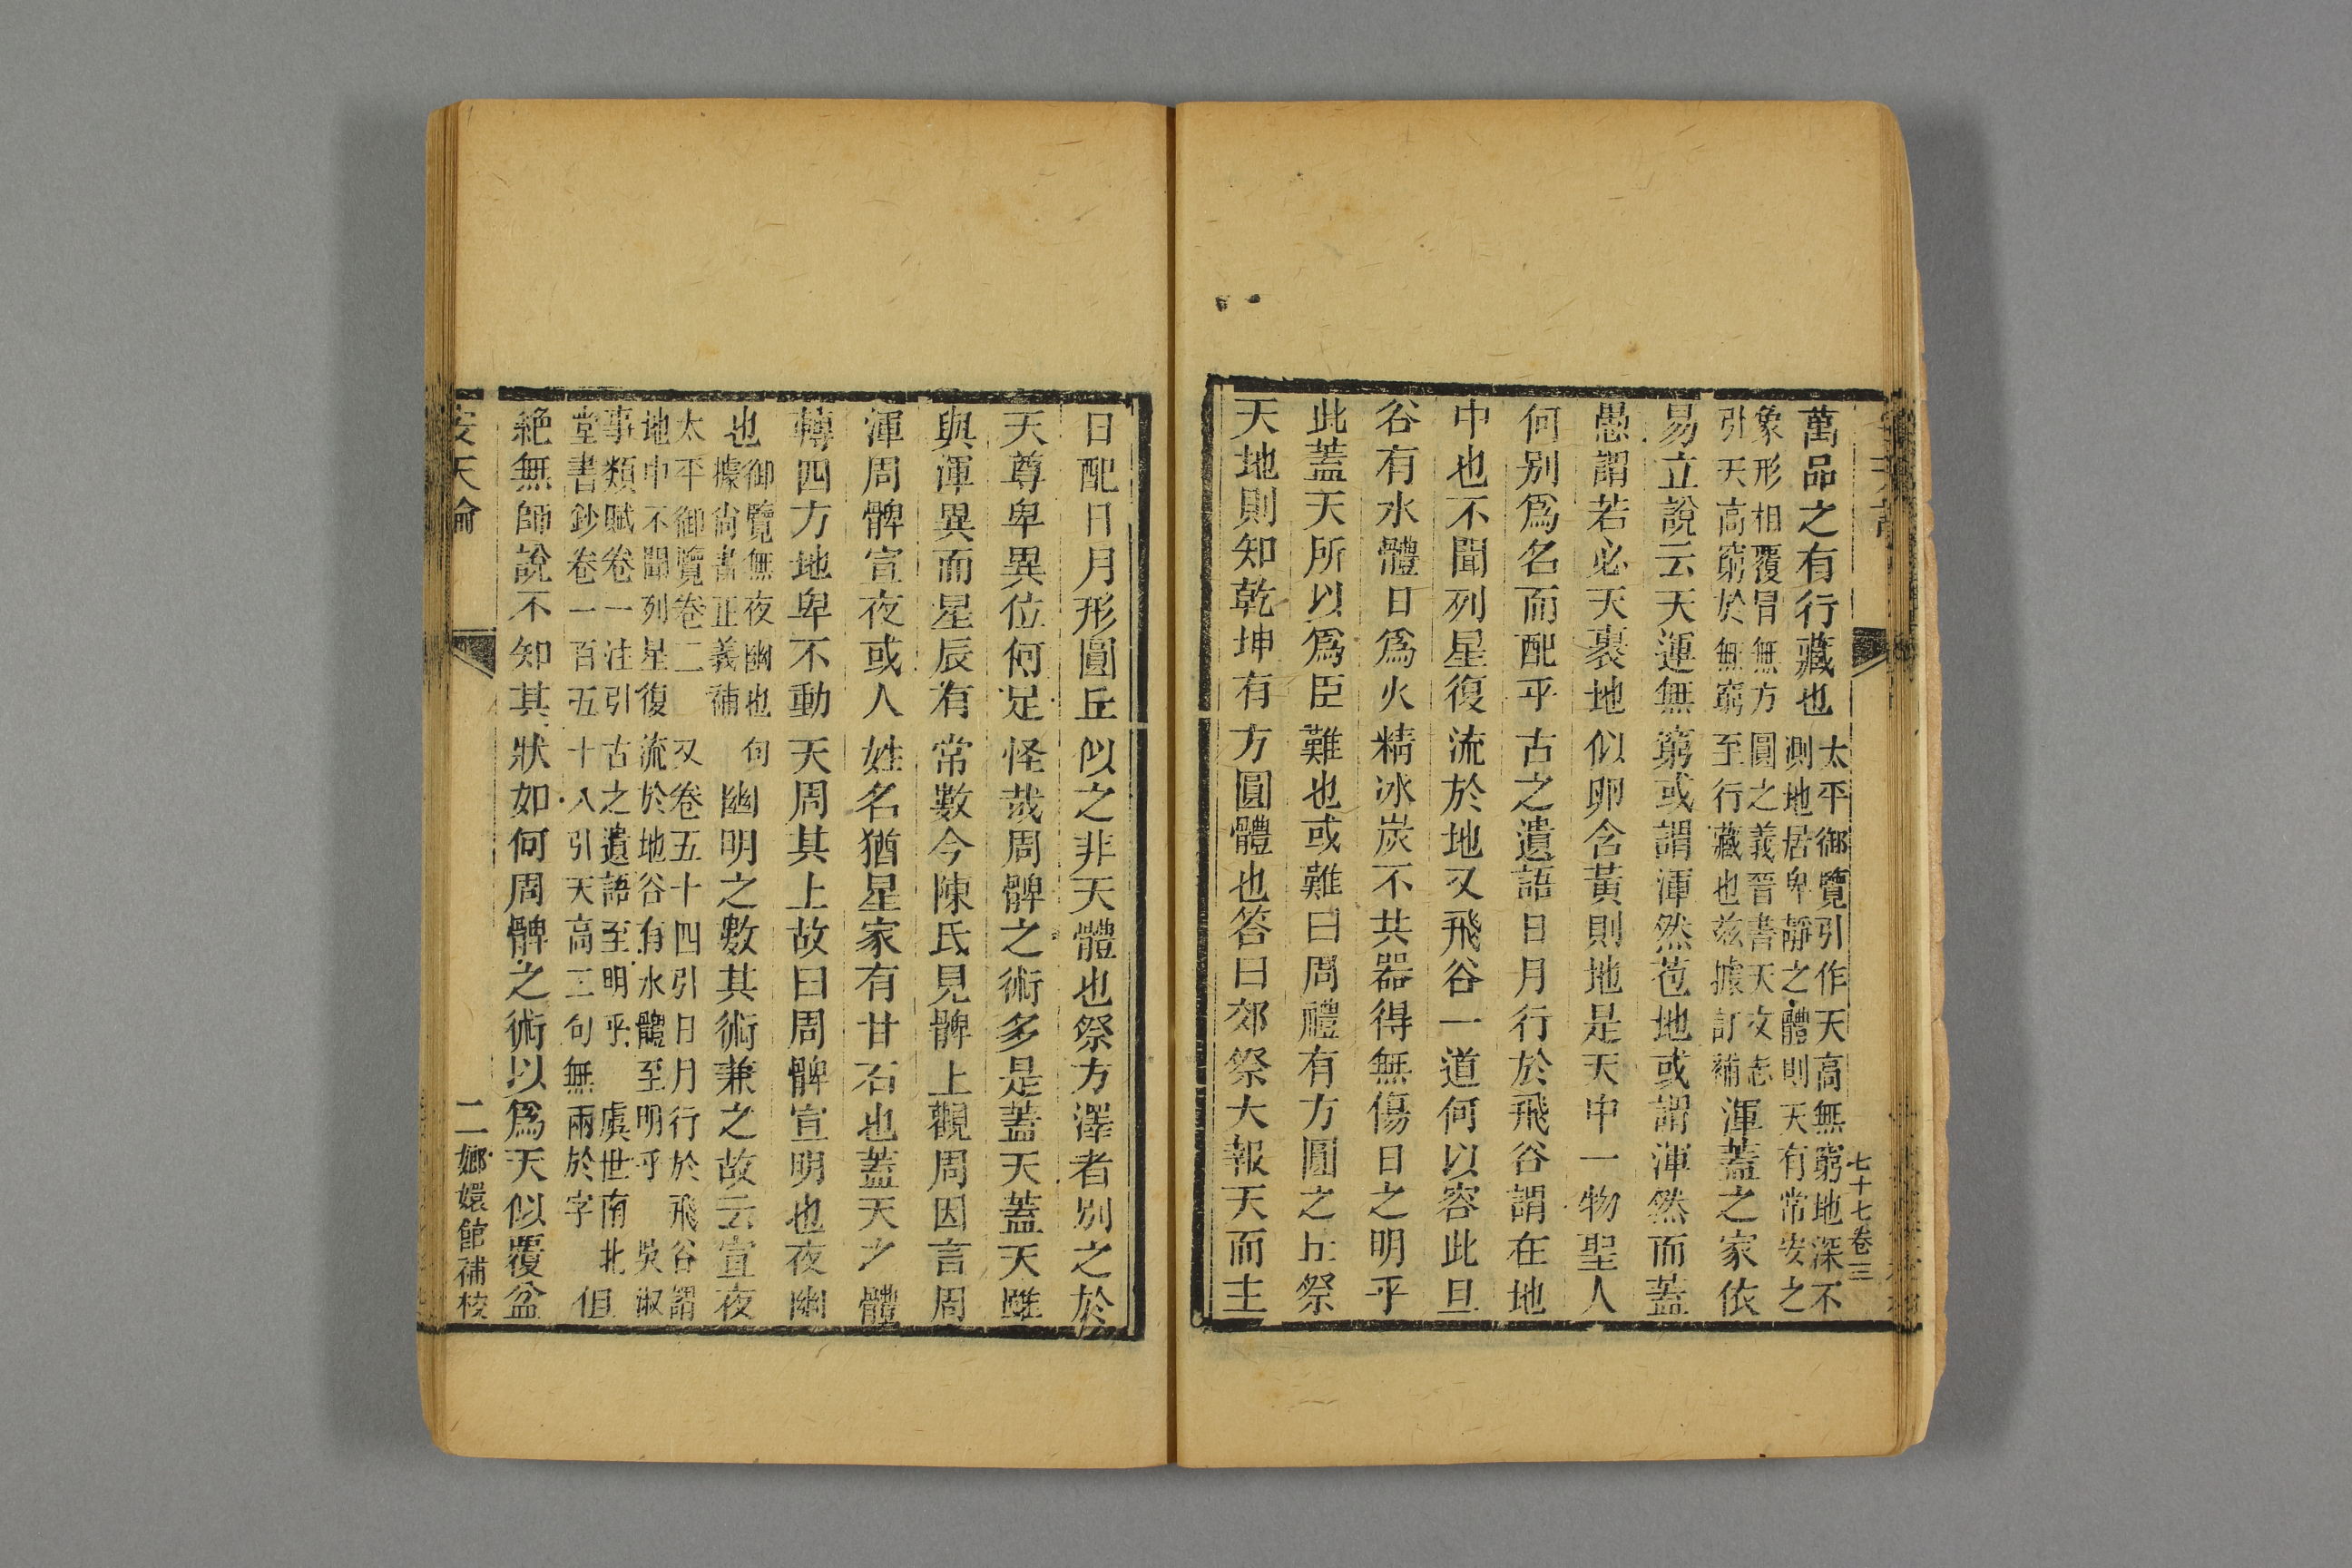 七十七卷三
萬品之有行藏也太平御覽引作天高無窮地深不
測地居卑靜之體則天有常安之
象形相覆冒無方圓之義晉書天文志
引天高窮於無窮至行藏也茲據訂補渾蓋之家依
易立說云天運無窮或謂渾然苞地或謂渾然而蓋
愚謂若必天裹地似卵含黃則地是天中一物聖人
何別爲名而配乎古之遺語日月行於飛谷謂在地
中也不聞列星復流於地又飛谷一道何以容此且
谷有水體日爲火精冰炭不共器得無傷日之明乎
此蓋天所以爲臣難也或難曰周禮有方圓之丘祭
天地則知乾坤有方圓體也答曰郊祭大報天而主
日配日月形圓丘似之非天體也祭方澤者別之於
天尊卑異位何足怪哉周髀之術多是蓋天蓋天雖
與渾異而星辰有常數今陳氏見髀上觀周因言周
渾周髀宣夜或人姓名猶星家有甘石也蓋天之體
轉四方地卑不動天周其上故曰周髀宣明也夜幽
也御覽無夜幽也句
據尚書正義補幽明之數其術兼之故云宣夜
太平御覽卷二又卷五十四引日月行於飛谷謂
地中不聞列星復流於地谷有水體至明乎吳淑
事類賦卷一注引古之遺語至明乎虞世南北
堂書鈔卷一百五十八引天高三句無兩於字但
絶無師說不知其狀如何周髀之術以爲天似覆盆
安天論
二嫏嬛館補校